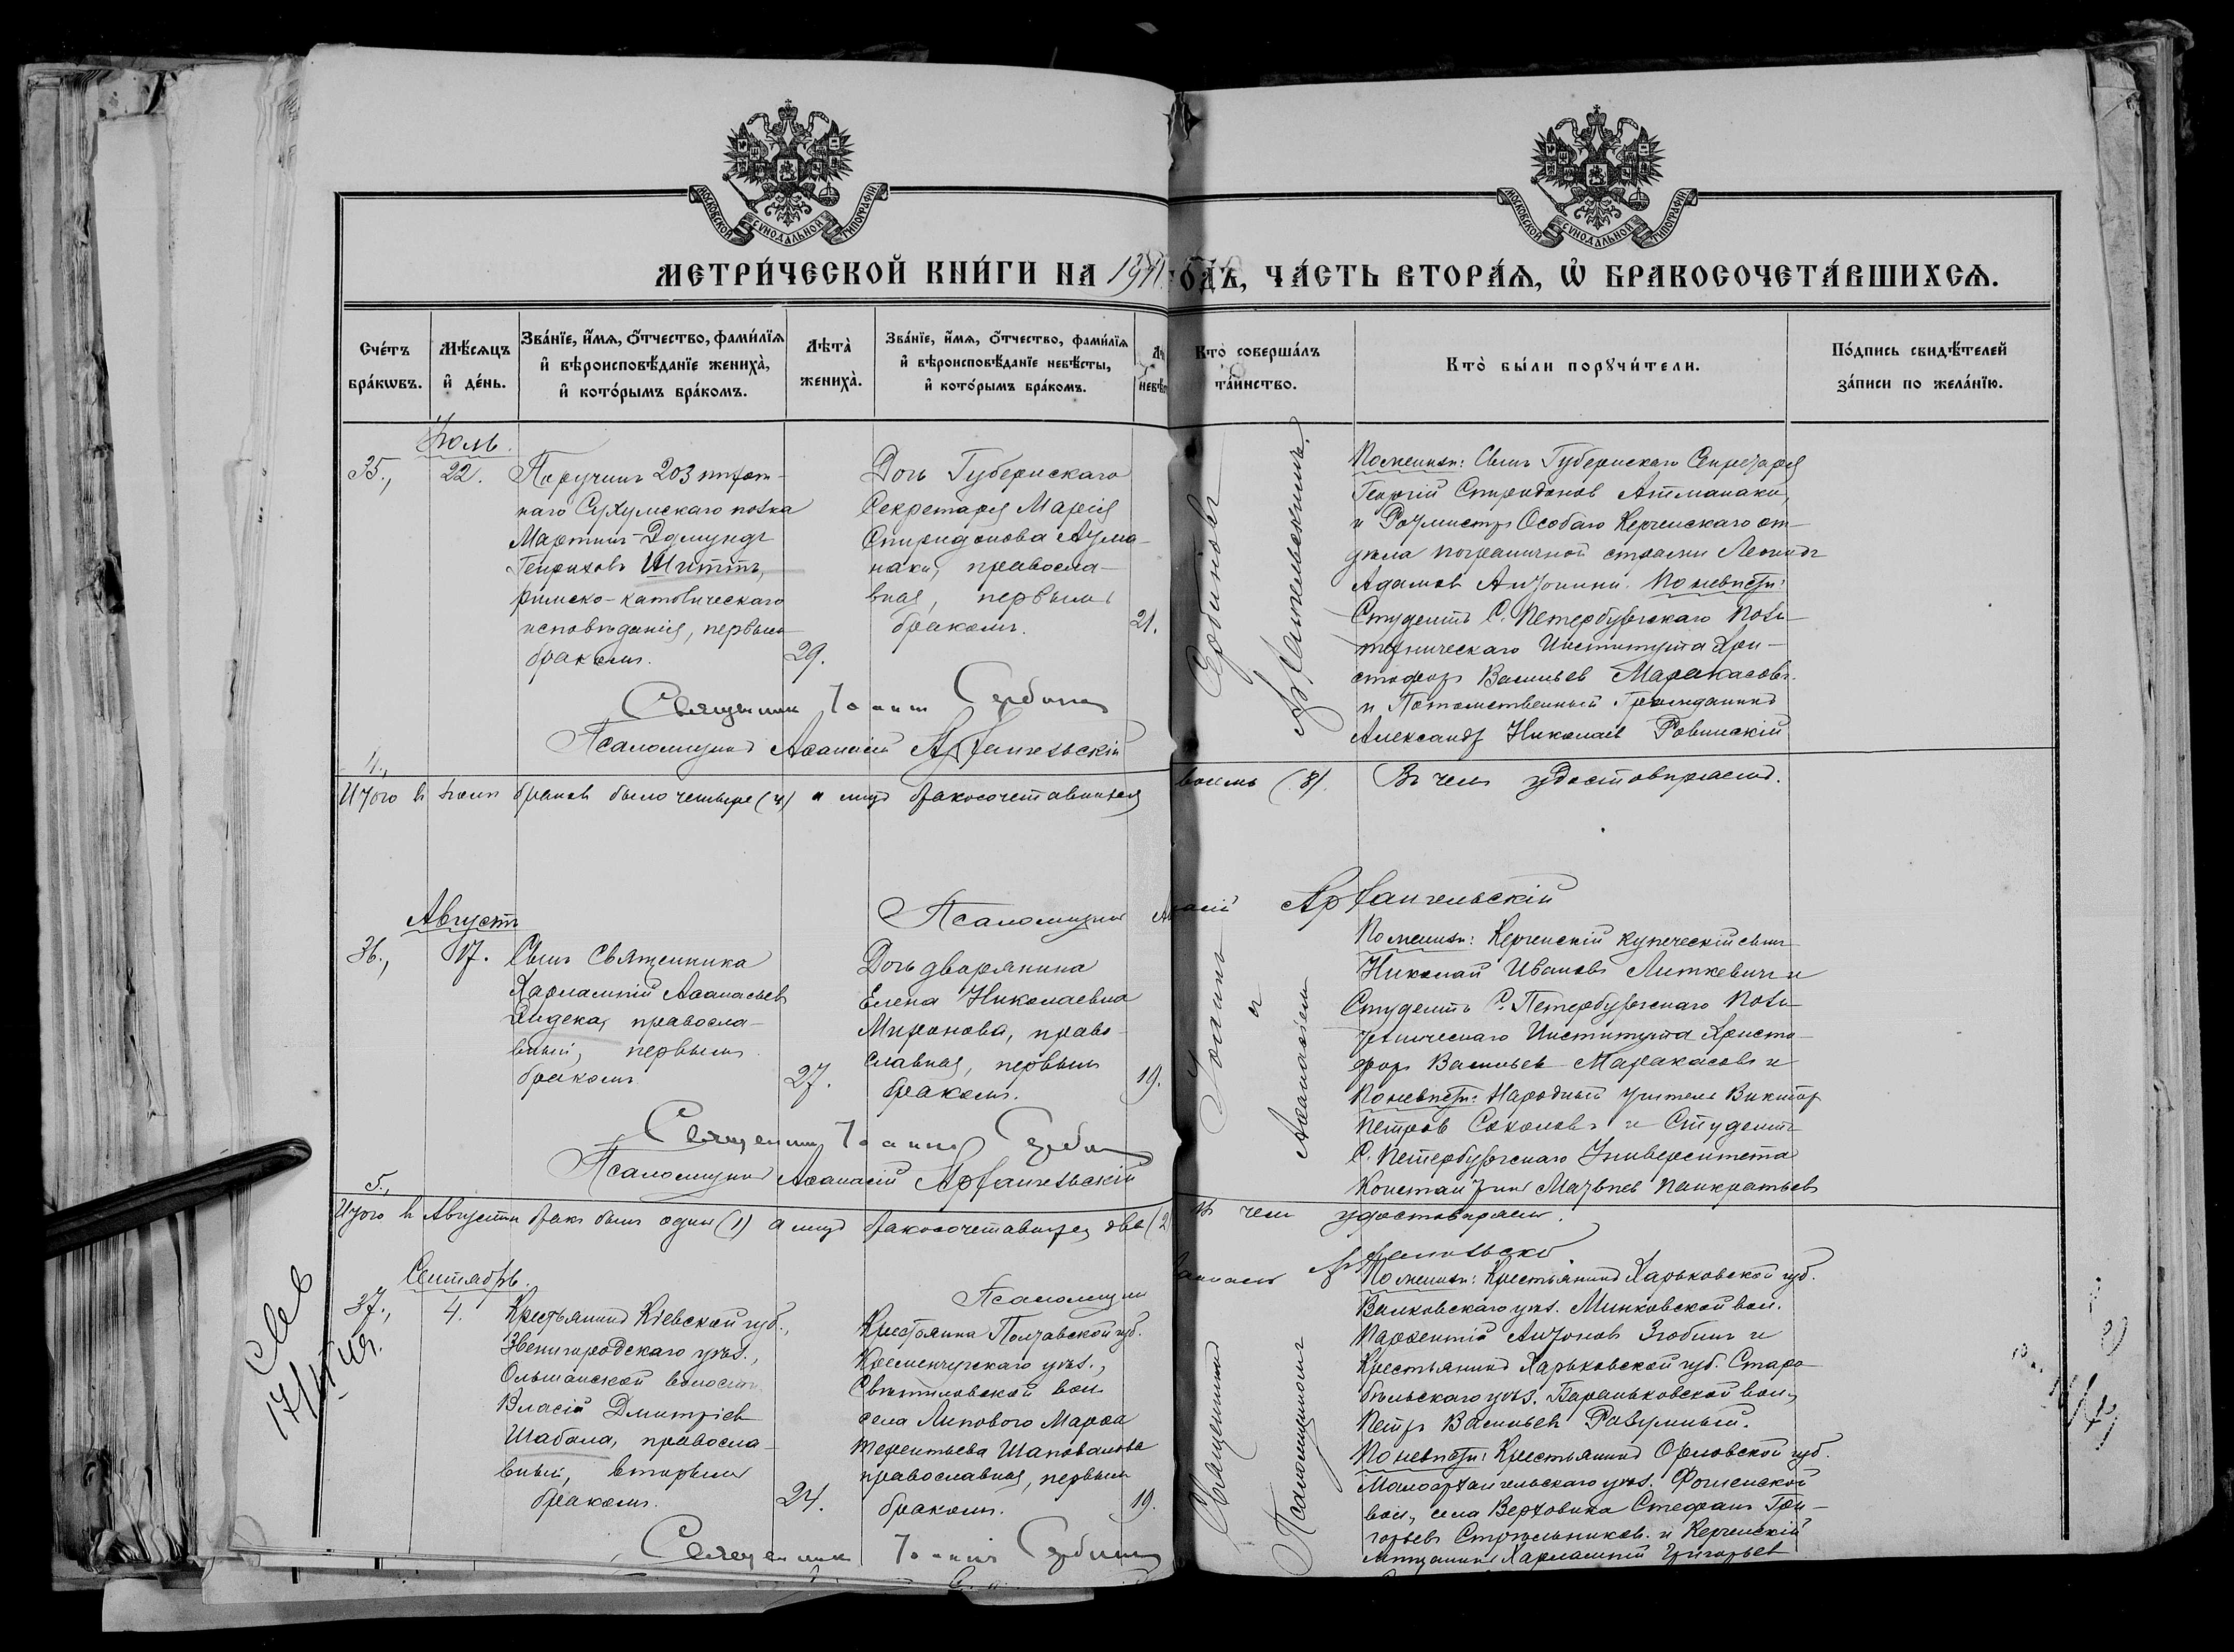 МОСКОВСКОЙ СѴНОДАЛЬНОЙ ТИПОГРАФІИ
МОСКОВСКОЙ СѴНОДАЛЬНОЙ ТИПОГРАФІИ
МЕТРИ́ЧЕСКОЙ КНИ́ГИ НА 1911 ГО́ДЪ, ЧА́СТЬ ВТОРА́Ѧ, Ѽ БРАКОСОЧЕТА́ВШИХСѦ.
Сче́тъ
бра́кѡвъ.
Мѣ́сѧцъ
и҆ де́нь.
Зва́нїе, и҆́мѧ, ѻ҆́тчество, фами́лїѧ
и҆ вѣроисповѣ́данїе жениха̀,
и҆ кото́рымъ бра́комъ.
Лѣта̀
жениха̀.
Зва́нїе, и҆́мѧ, ѻ҆́тчество, фами́лїѧ
и҆ вѣроисповѣ́данїе невѣ́сты,
и҆ кото́рымъ бра́комъ.
Кто̀ соверша́лъ
та́инство.
Кто̀ бы́ли порꙋчи́тели.
По́дпись свидѣ́телей
за́писи по жела́нїю.
Іюль.
35.,
22.
Поручикъ 203 пѣхот-
наго Сухумскаго полка
Мартинъ-Эдмундъ
Генриховъ Шиттъ,
римско-католическаго
исповѣданія, первымъ
бракомъ.
29.
Дочь Губернскаго
Секретаря Марія
Спиридонова Атма-
наки, правосла-
вная, первымъ
бракомъ.
21.
По женихѣ: Сынъ Губернскаго Секретаря
Георгій Спиридонов Атманаки,
и Ротмистръ Особаго Керченскаго от-
дѣла пограничной стражи Леонидъ
Адамов Антонини. По невѣстѣ:
Студентъ С. Петербургскаго Поли-
техническаго Института Хри-
стофоръ Васильев Маракасовъ
и Потомственный Гражданинъ
Александръ Николаев Ровинскій
Священник Іоаннъ Сербинов
Псаломщикъ Аѳанасій Архангельскій
4.,
Итого в іюлѣ браков было четыре (4) а лицъ бракосочетавшихся восемь (8). Въ чемъ удостовѣряемъ.
Псаломщикъ Аѳанасій Архангельскій
Августъ
36.,
17.
Сынъ Священника
Харлампій Аѳанасьев
Диндека, правосла-
вный, первымъ
бракомъ
27.
Дочь дворянина
Елена Николаевна
Миронова, право-
славная, первымъ
бракомъ.
19.
По женихѣ: Керченскій купеческій сынъ
Николай Ивановъ Литкевичъ и
Студентъ С. Петербургскаго Поли-
техническаго Института Христо-
форъ Васильев Маракасовъ и
По невѣстѣ: Народный учитель Викторъ
Петров Соколовъ и Студентъ
С. Петербургскаго Университета
Константинъ Матвѣев Панкратьев
Священник Іоаннъ Сербинов
Псаломщикъ Аѳанасій Архангельскій
5.,
Итого в Августѣ бракъ былъ один (1) а лицъ бракосочетавшихся два (2) Въ чемъ удостовѣряем.
Псаломщик Архангельскій
Сентябрь.
37.,
4.
Крестьянинъ Кіевской губ.,
Звенигородскаго уѣз.,
Ольшанской волости
Власій Дмитріев
Шабала, правосла-
вный, вторымъ
бракомъ.
24.
Крестьянка Полтавской губ.
Кременчугскаго уѣз.,
вол.
села Липового Марѳа
Терентьева Шаповалова
православная, первымъ
бракомъ.
19.
Священникъ Іоаннъ Сербиновъ
съ
Псаломщикомъ Аѳанасіемъ Архангельскимъ.
По женихѣ: Крестьянинъ Харьковской губ.
Валковскаго уѣз. Минковской вол.
Парѳентій Антонов Злобинъ и
Крестьянинъ Харьковской губ. Старо-
бѣльскаго уѣз. вол.,
Петръ Васильев Разумный.
По невѣстѣ: Крестьянинъ Орловской губ.
Малоархангельскаго уѣз. вол., села Верховика Стефанъ Гри-
горьевъ Стрѣльников. и Керченскій
мѣщанинъ Харлампій Григорьев
Священник Іоаннъ Сербинов